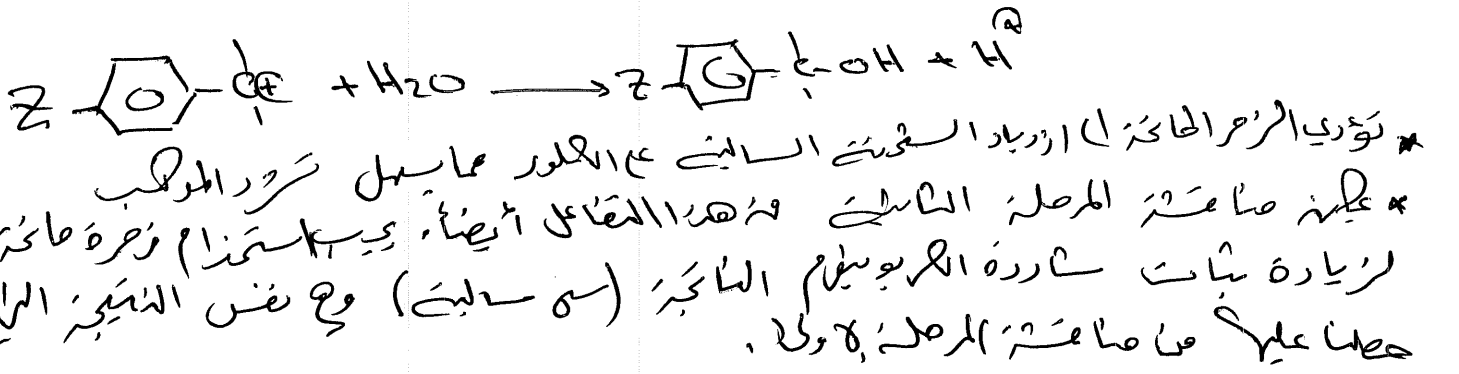 Z C⊕ + H2O → Z C-OH + H⊕
* تؤدي الزمر المانحة إلى ازدياد الشحنة السالبة على الكلور مما يسهل شرد المركب
* يمكن مناقشة المرحلة الثانية من هذا التفاعل أيضاً. يجب استخدام زمرة مانحة
لزيادة ثبات شاردة الكربونيوم الناتجة (سالبة) وهي نفس النتيجة التي
حصلنا عليها من مناقشة المرحلة الأولى.